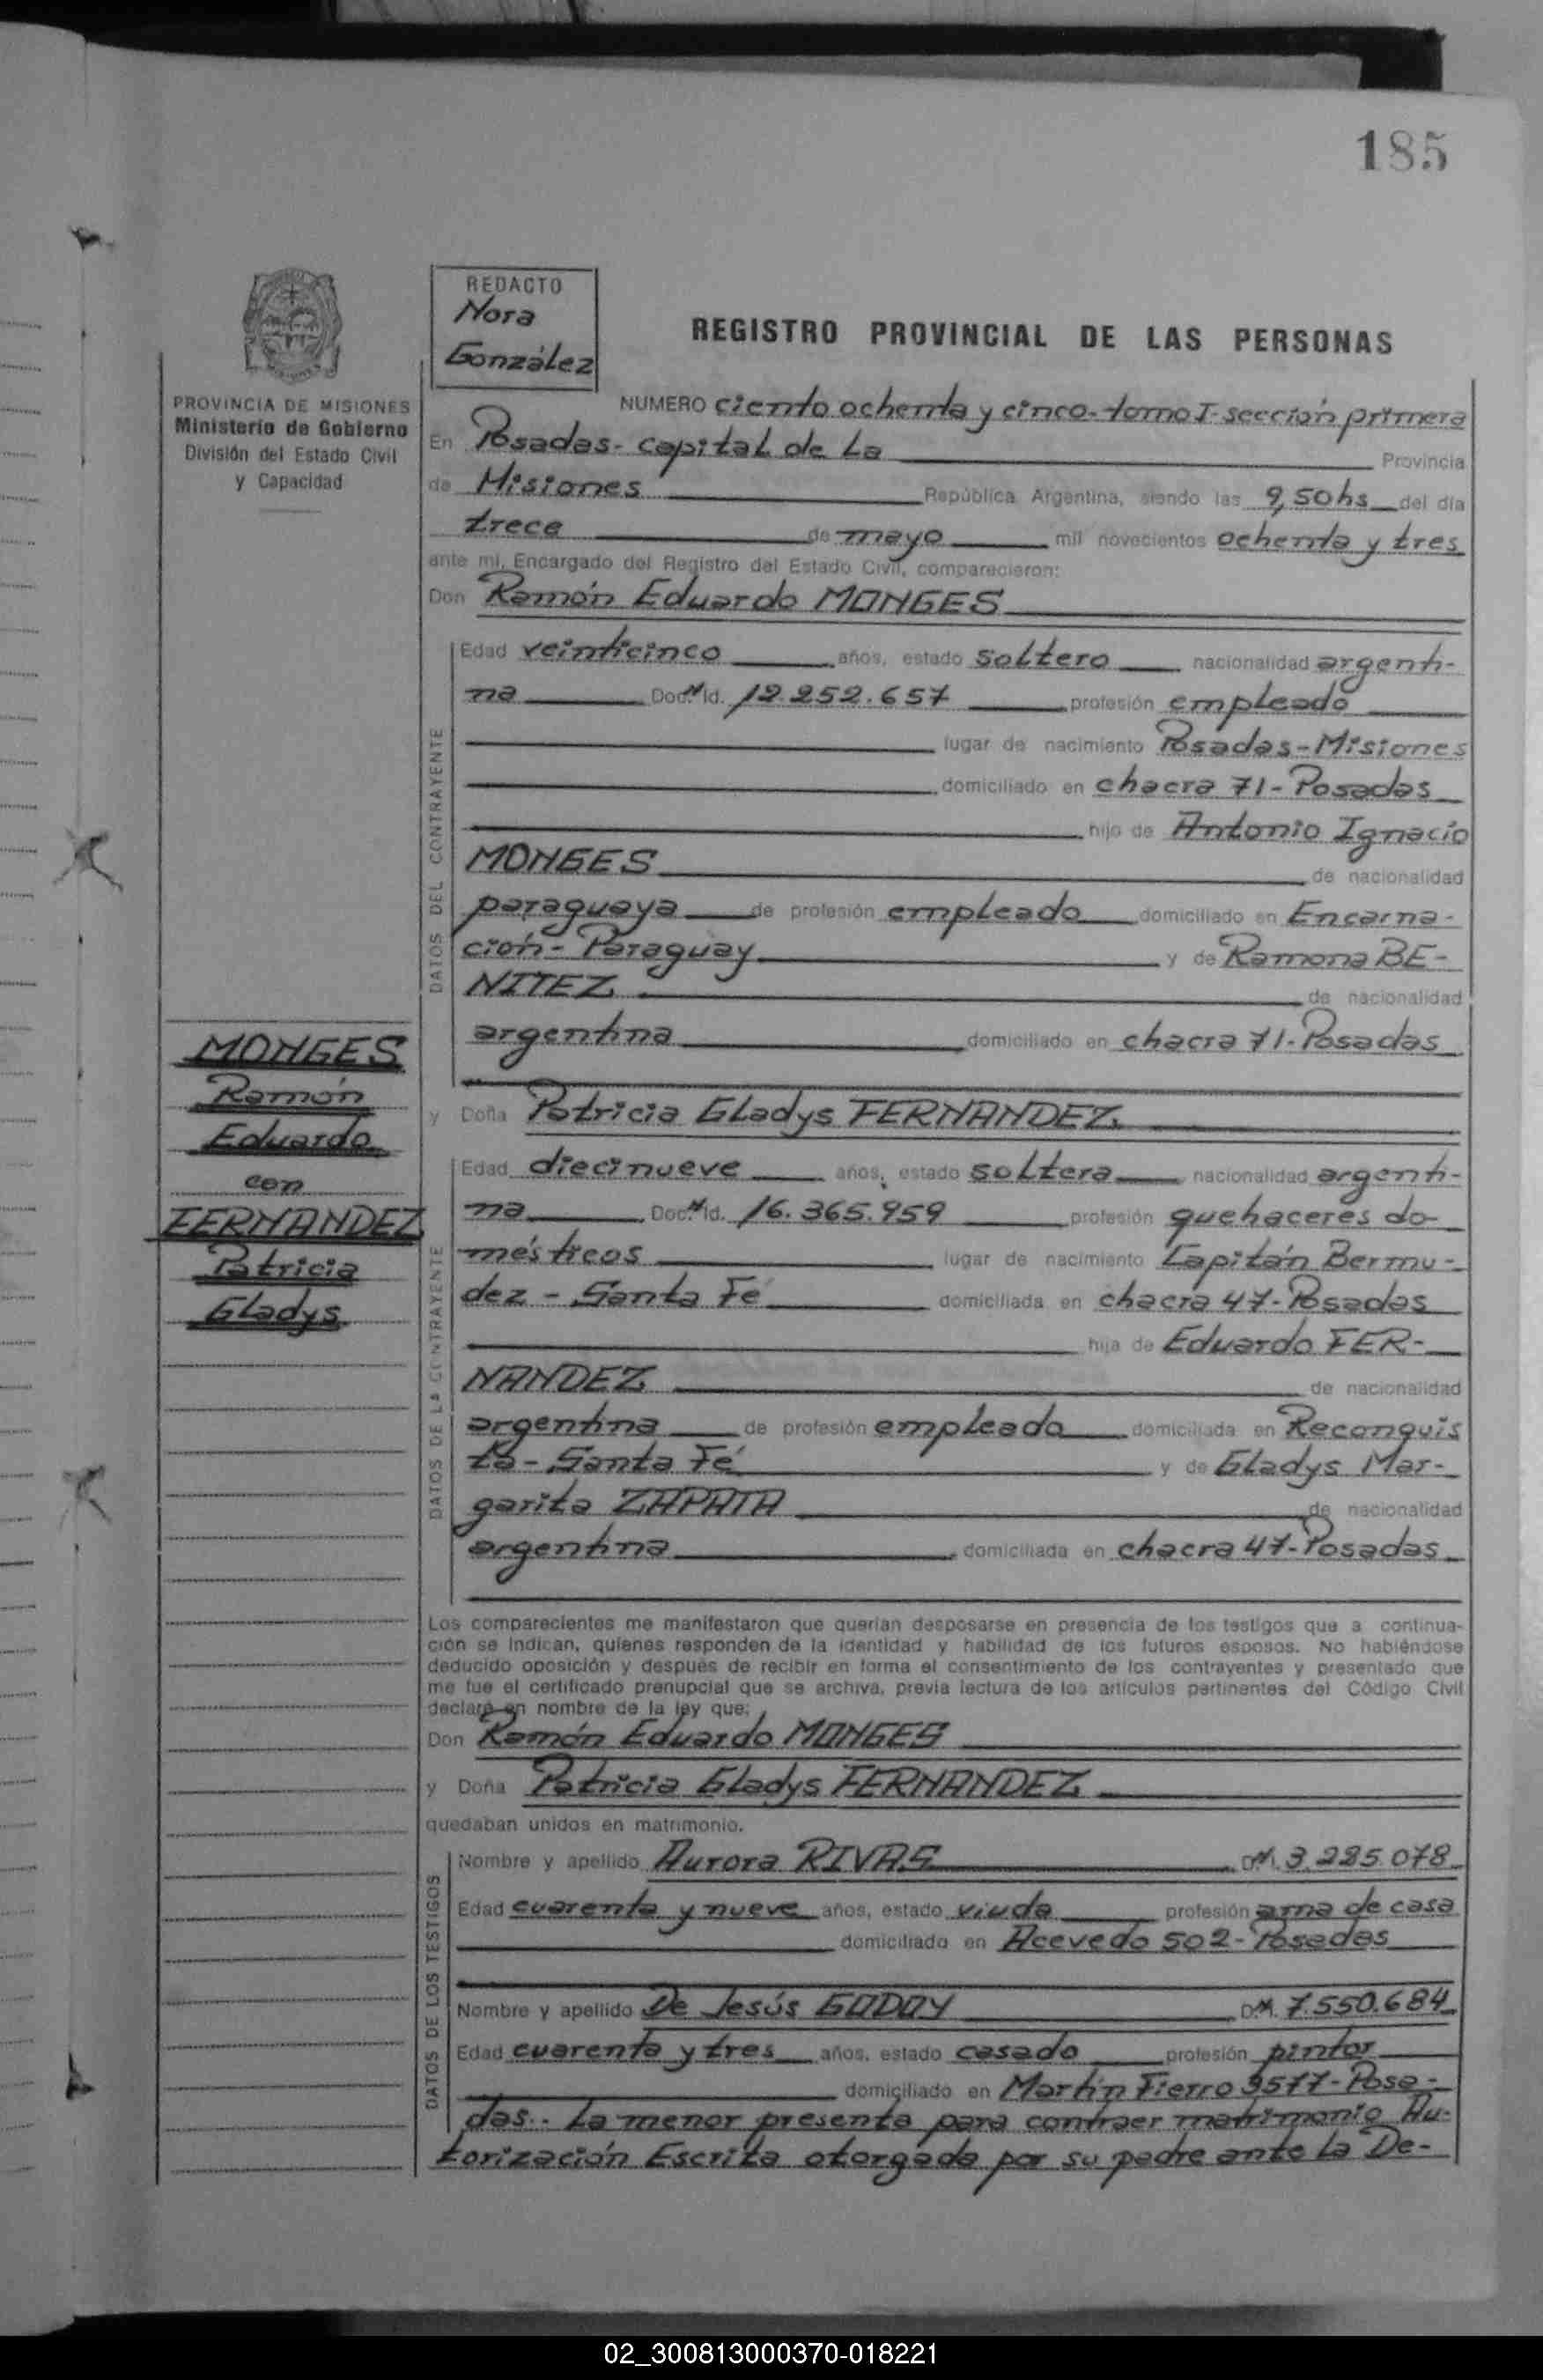 185
REDACTO
Nora
González
REGISTRO PROVINCIAL DE LAS PERSONAS
PROVINCIA DE MISIONES
Ministerio de Gobierno
División del Estado Civil
y Capacidad
NUMERO ciento ochenta y cinco-tomo I-sección primera
En Posadas-capital de La Provincia
de Misiones República Argentina, siendo las 9,50hs del día
trece de mayo mil novecientos ochenta y tres
ante mí, Encargado del Registro del Estado Civil, comparecieron:
Don Ramón Eduardo MONGES
DATOS DEL CONTRAYENTE
Edad veinticinco años, estado soltero nacionalidad argenti-
na Doc. Id. 12.252.657 profesión empleado
lugar de nacimiento Posadas-Misiones
domiciliado en chacra 71-Posadas
hijo de Antonio Ignacio
MONGES de nacionalidad
paraguaya de profesión empleado domiciliado en Encarna-
ción-Paraguay y de Ramona BE-
NITEZ de nacionalidad
argentina domiciliado en chacra 71-Posadas
MONGES
Ramón
Eduardo
con
FERNANDEZ
Patricia
Gladys
y Doña Patricia Gladys FERNANDEZ
DATOS DE LA CONTRAYENTE
Edad diecinueve años, estado soltera nacionalidad argenti-
na Doc. Id. 16.365.959 profesión quehaceres do-
mésticos lugar de nacimiento Capitán Bermu-
dez - Santa Fé domiciliada en chacra 47-Posadas
hija de Eduardo FER-
NANDEZ de nacionalidad
argentina de profesión empleado domiciliada en Reconquis
ta-Santa Fé y de Gladys Mar-
garita ZAPATA de nacionalidad
argentina domiciliada en chacra 47-Posadas
Los comparecientes me manifestaron que querían desposarse en presencia de los testigos que a continua-
ción se indican, quienes responden de la identidad y habilidad de los futuros esposos. No habiéndose
deducido oposición y después de recibir en forma el consentimiento de los contrayentes y presentado que
me fue el certificado prenupcial que se archiva, previa lectura de los artículos pertinentes del Código Civil
declaré en nombre de la ley que:
Don Ramón Eduardo MONGES
y Doña Patricia Gladys FERNANDEZ
quedaban unidos en matrimonio.
DATOS DE LOS TESTIGOS
Nombre y apellido Aurora RIVAS 3.225.078
Edad cuarenta y nueve años, estado viuda profesión ama de casa
domiciliado en Acevedo 502-Posadas
Nombre y apellido De Jesús GODOY 7.550.684
Edad cuarenta y tres años, estado casado profesión pintor
domiciliado en Martín Fierro 3577-Posa-
das.- La menor presenta para contraer matrimonio Au-
torización Escrita otorgada por su padre ante la De-
02_300813000370-018221